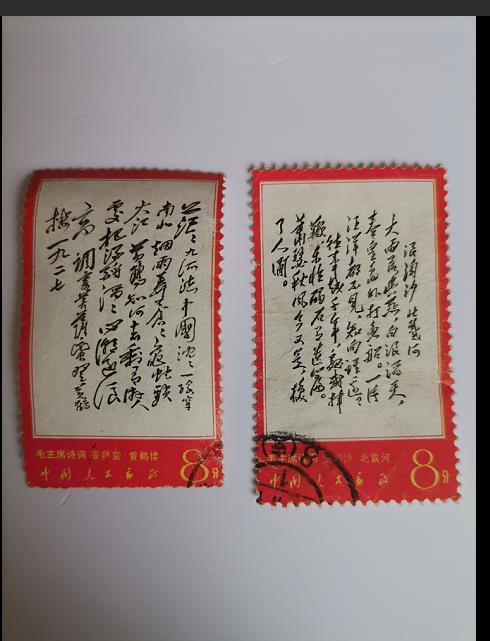 茫茫九派流中國沈沈一线穿
南北烟雨莽苍苍龟蛇锁
大江黄鹤知何去剩有游人
处把酒酹滔滔心潮逐浪
高 调寄菩萨蛮登黄鹤
楼 一九二七
毛主席诗词 菩萨蛮·黄鹤楼
中国人民邮政
8分
浪淘沙 北戴河
大雨落幽燕,白浪滔天,
秦皇岛外打鱼船。一片
汪洋都不见,知向谁边?
往事越千年,魏武挥
鞭,东临碣石有遗篇。
萧瑟秋风今又是,换
了人间。
毛主席诗词 浪淘沙·北戴河
中国人民邮政
8分